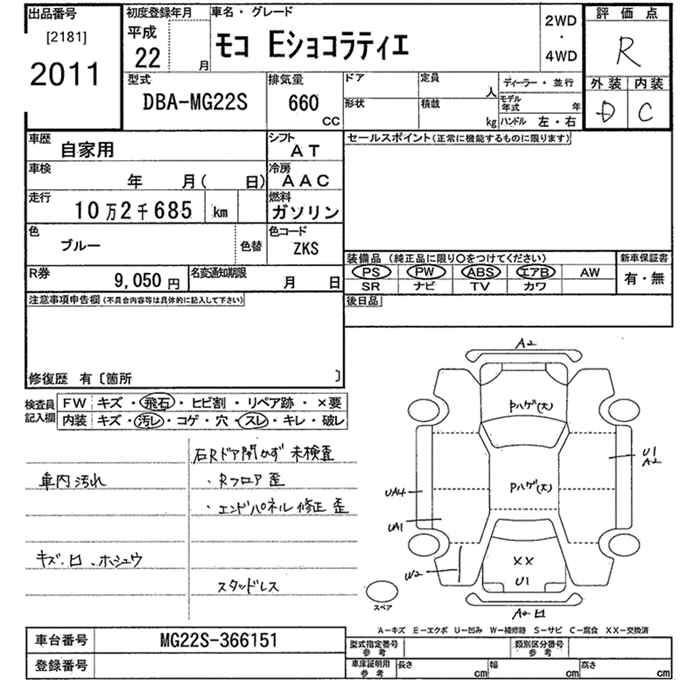 出品番号
[2181]
2011
初度登録年月
平成
22 月
車名・グレード
モコ Eショコラティエ
2WD
・
4WD
評価点
R
外装 内装
D C
型式
DBA-MG22S
排気量
660
CC
ドア 定員 人
形状 積載 kg
ディーラー・並行
モデル年式 年
ハンドル 左・右
車歴
自家用
シフト
AT
車検
年 月( 日)
冷房
AAC
走行
10万2千685 km
燃料
ガソリン
色
ブルー
色替
色コード
ZKS
R券
9,050円
名変通知期限
月 日
セールスポイント(正常に機能するものに限ります)
装備品(純正品に限り○をつけてください)
PS PW ABS エアB AW
SR ナビ TV カワ
新車保証書
有・無
後日品
注意事項申告欄(不具合内容等は具体的に記入して下さい)
修復歴 有〔箇所 〕
検査員
記入欄
FW キズ・飛石・ヒビ割・リペア跡・×要
内装 キズ・汚レ・コゲ・穴・スレ・キレ・破レ
車内汚れ
キズ.凹.ホシュウ
右Rドア開かず 未検査
・Rフロア歪
・エンドパネル修正歪
スタッドレス
A2
Pハゲ(大)
Pハゲ(大)
U1
A2
UA4
UA1
W2
XX
U1
A2凹
スペア
A−キズ E−エクボ U−凹み W−補修跡 S−サビ C−腐食 XX−交換済
車台番号
MG22S-366151
登録番号
型式指定番号
参考
類別区分番号
参考
車庫証明用
参考
長さ cm 幅 cm 高さ cm